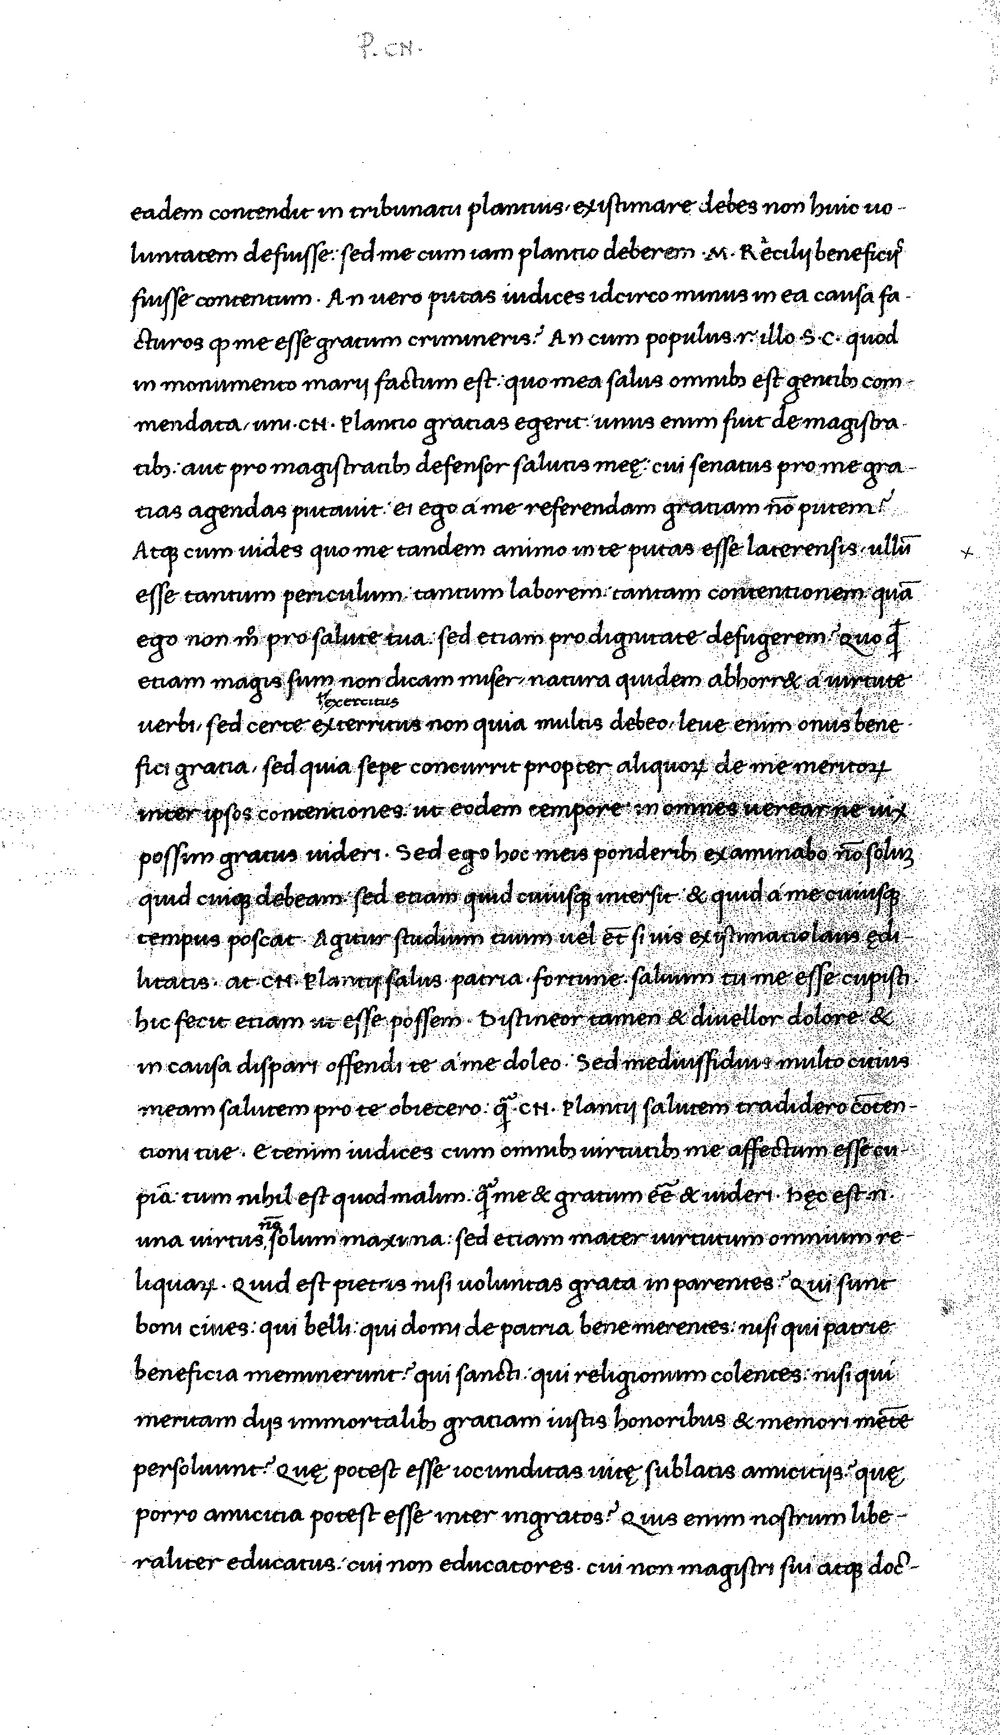 P. CN.
eadem contendit in tribunatu plantius, existimare debes non huic uo-
luntatem defuisse: sed me cum iam plantio deberem .M. Recilij beneficijs
fuisse contentum. An vero putas iudices idcirco minus in ea causa fa-
cturos qp me esse gratum crimineris? An cum populus .r. illo .S.C. quod
in monumento marij factum est: quo mea salus omnibꝫ est gentibꝫ com-
mendata, uni .CN. Plantio gratias egerit: unus enim fuit de magistra-
tibꝫ: aut pro magistratibꝫ defensor salutis meę: cui senatus pro me gra-
tias agendas putauit: ei ego a me referendam gratiam nō putem?
Atqꝫ cum uides quo me tandem animo in te putas esse laterensis, ullū
esse tantum periculum: tantum laborem: tantam contentionem quā
ego non mͦ pro salute tua: sed etiam pro dignitate defugerem? Quo qͥd
etiam magis sum non dicam miser, natura quidem abhorr& a uirtute
ł exercitus
verbi, sed certe exterritus non quia multis debeo, leue enim onus bene
fici gratia, sed quia sepe concurrit propter aliquoꝝ de me meritoꝝ
inter ipsos contentiones: ut eodem tempore in omnes uerear ne uix
possim gratus uideri. Sed ego hoc meis ponderibꝫ examinabo nō soluꝫ
quid cuiqꝫ debeam: sed etiam quid cuiusqꝫ intersit: & quid a me cuiusqꝫ
tempus poscat. Agitur studium tuum uel ēt si uis existimatio laus ędi-
litatis. at CN. Plantij salus patria fortune. saluum tu me esse cupisti.
hic fecit etiam ut esse possem. Distineor tamen & diuellor dolore: &
in causa dispari offendi te a me doleo. Sed mediussidius multo citius
meam salutem pro te obiecero: qͣ̄ .CN. Plantij salutem tradidero cōten-
tioni tue. Etenim iudices cum omnibꝫ uirtutibꝫ me affectum esse cu-
piā: tum nihil est quod malim: qͣ̄ me & gratum eē & uideri. Hęc est .n.
nō
una uirtus solum maxima: sed etiam mater uirtutum omnium re-
liquaꝝ. Quid est pietas nisi uoluntas grata in parentes? Qui sunt
boni ciues: qui belli: qui domi de patria bene merentes: nisi qui patrie
beneficia meminerunt? qui sancti: qui religionum colentes: nisi qui
meritam dijs immortalibꝫ gratiam iustis honoribus & memori mēte
persoluunt? Quę potest esse iocunditas uitę sublatis amicitijs? quę
porro amicitia potest esse inter ingratos? Quis enim nostrum libe-
raliter educatus: cui non educatores. cui non magistri sui atqꝫ doc̄-